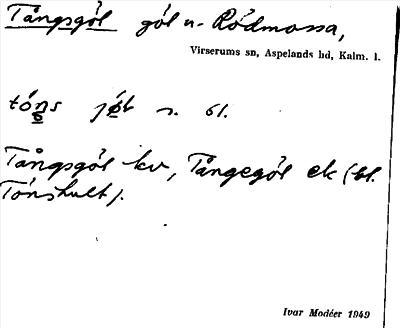 Tångsgöl göl u. Rödmossa,
Virserums sn, Aspelands hd, Kalm. l.
tóns jöl n. 61.
Tångsgöl kv, Tångegöl ek (bl.
Tónshult).
Ivar Modéer 1949